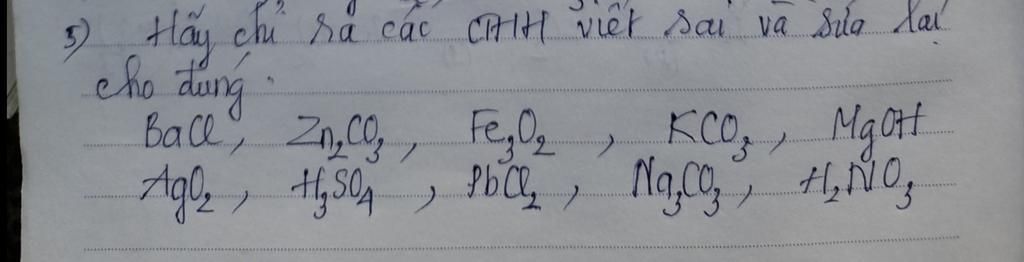 5) Hãy chỉ ra các CTHH viết sai và sửa lại
cho đúng.
BaCl, Zn₂CO₃, Fe₃O₂, KCO₃, MgOH
AgO₂, H₃SO₄, PbCl₂, Na₃CO₃, H₂NO₃